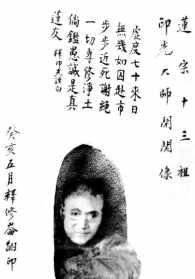 蓮宗十三祖
印光大師閉關像
虛度七十來日
無幾如囚赴市
步步近死謝絕
一切專修淨土
倘鑑愚誠是真
蓮友
釋印光謹白
癸亥五月釋修崙謝印